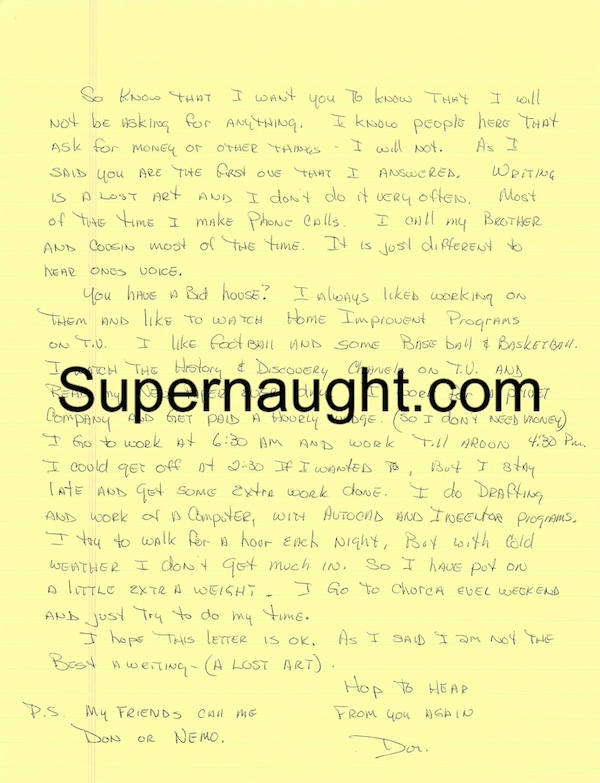 So KNOW THAT I WANT YOU TO KNOW THAT I will
NOT be ASKING for ANYTHING. I KNOW people here THAT
ASK for MONEY or OTHER THINGS - I will NOT. As I
SAID YOU ARE THE first ONE THAT I ANSWERED. WRITING
IS A LOST ART AND I DON'T do it very often. Most
of THE TIME I MAKE PHONE CALLS. I CALL my BROTHER
AND COUSIN MOST of THE TIME. It is just different to
hear ONES VOICE.
You HAVE A Bid house? I Always liked working on
THEM AND like TO WATCH Home Improvent Programs
ON T.V. I like football AND some Base ball & BASKETBALL.
I WATCH THE HISTORY & DISCOVERY ON T.V. AND
READ my
Supernaught.com
COMPANY AND GET PAID A HOURLY (So I DON'T NEED MONEY)
I Go to work At 6:30 AM AND WORK Till AROUN 4:30 Pm.
I could get off AT 2:30 If I WANTED To, But I STAY
late AND get some extra work done. I do DRAFTING
AND WORK of A Computer, WITH AUTOCAD AND INEENTOR programs.
I try to walk for A hour EACH Night, But with Cold
WEATHER I don't get much in. So I HAVE put on
A LITTLE EXTRA WEIGHT. I Go to CHURCH EVEL WEEKEND
AND just Try to do my time.
I hope THIS letter is OK. As I SAID I AM NOT THE
Best A WRITING - (A LOST ART).
Hop To HEAR
P.S. My FRIENDS CALL ME FROM you AGAIN
DON OR NEMO. Don.